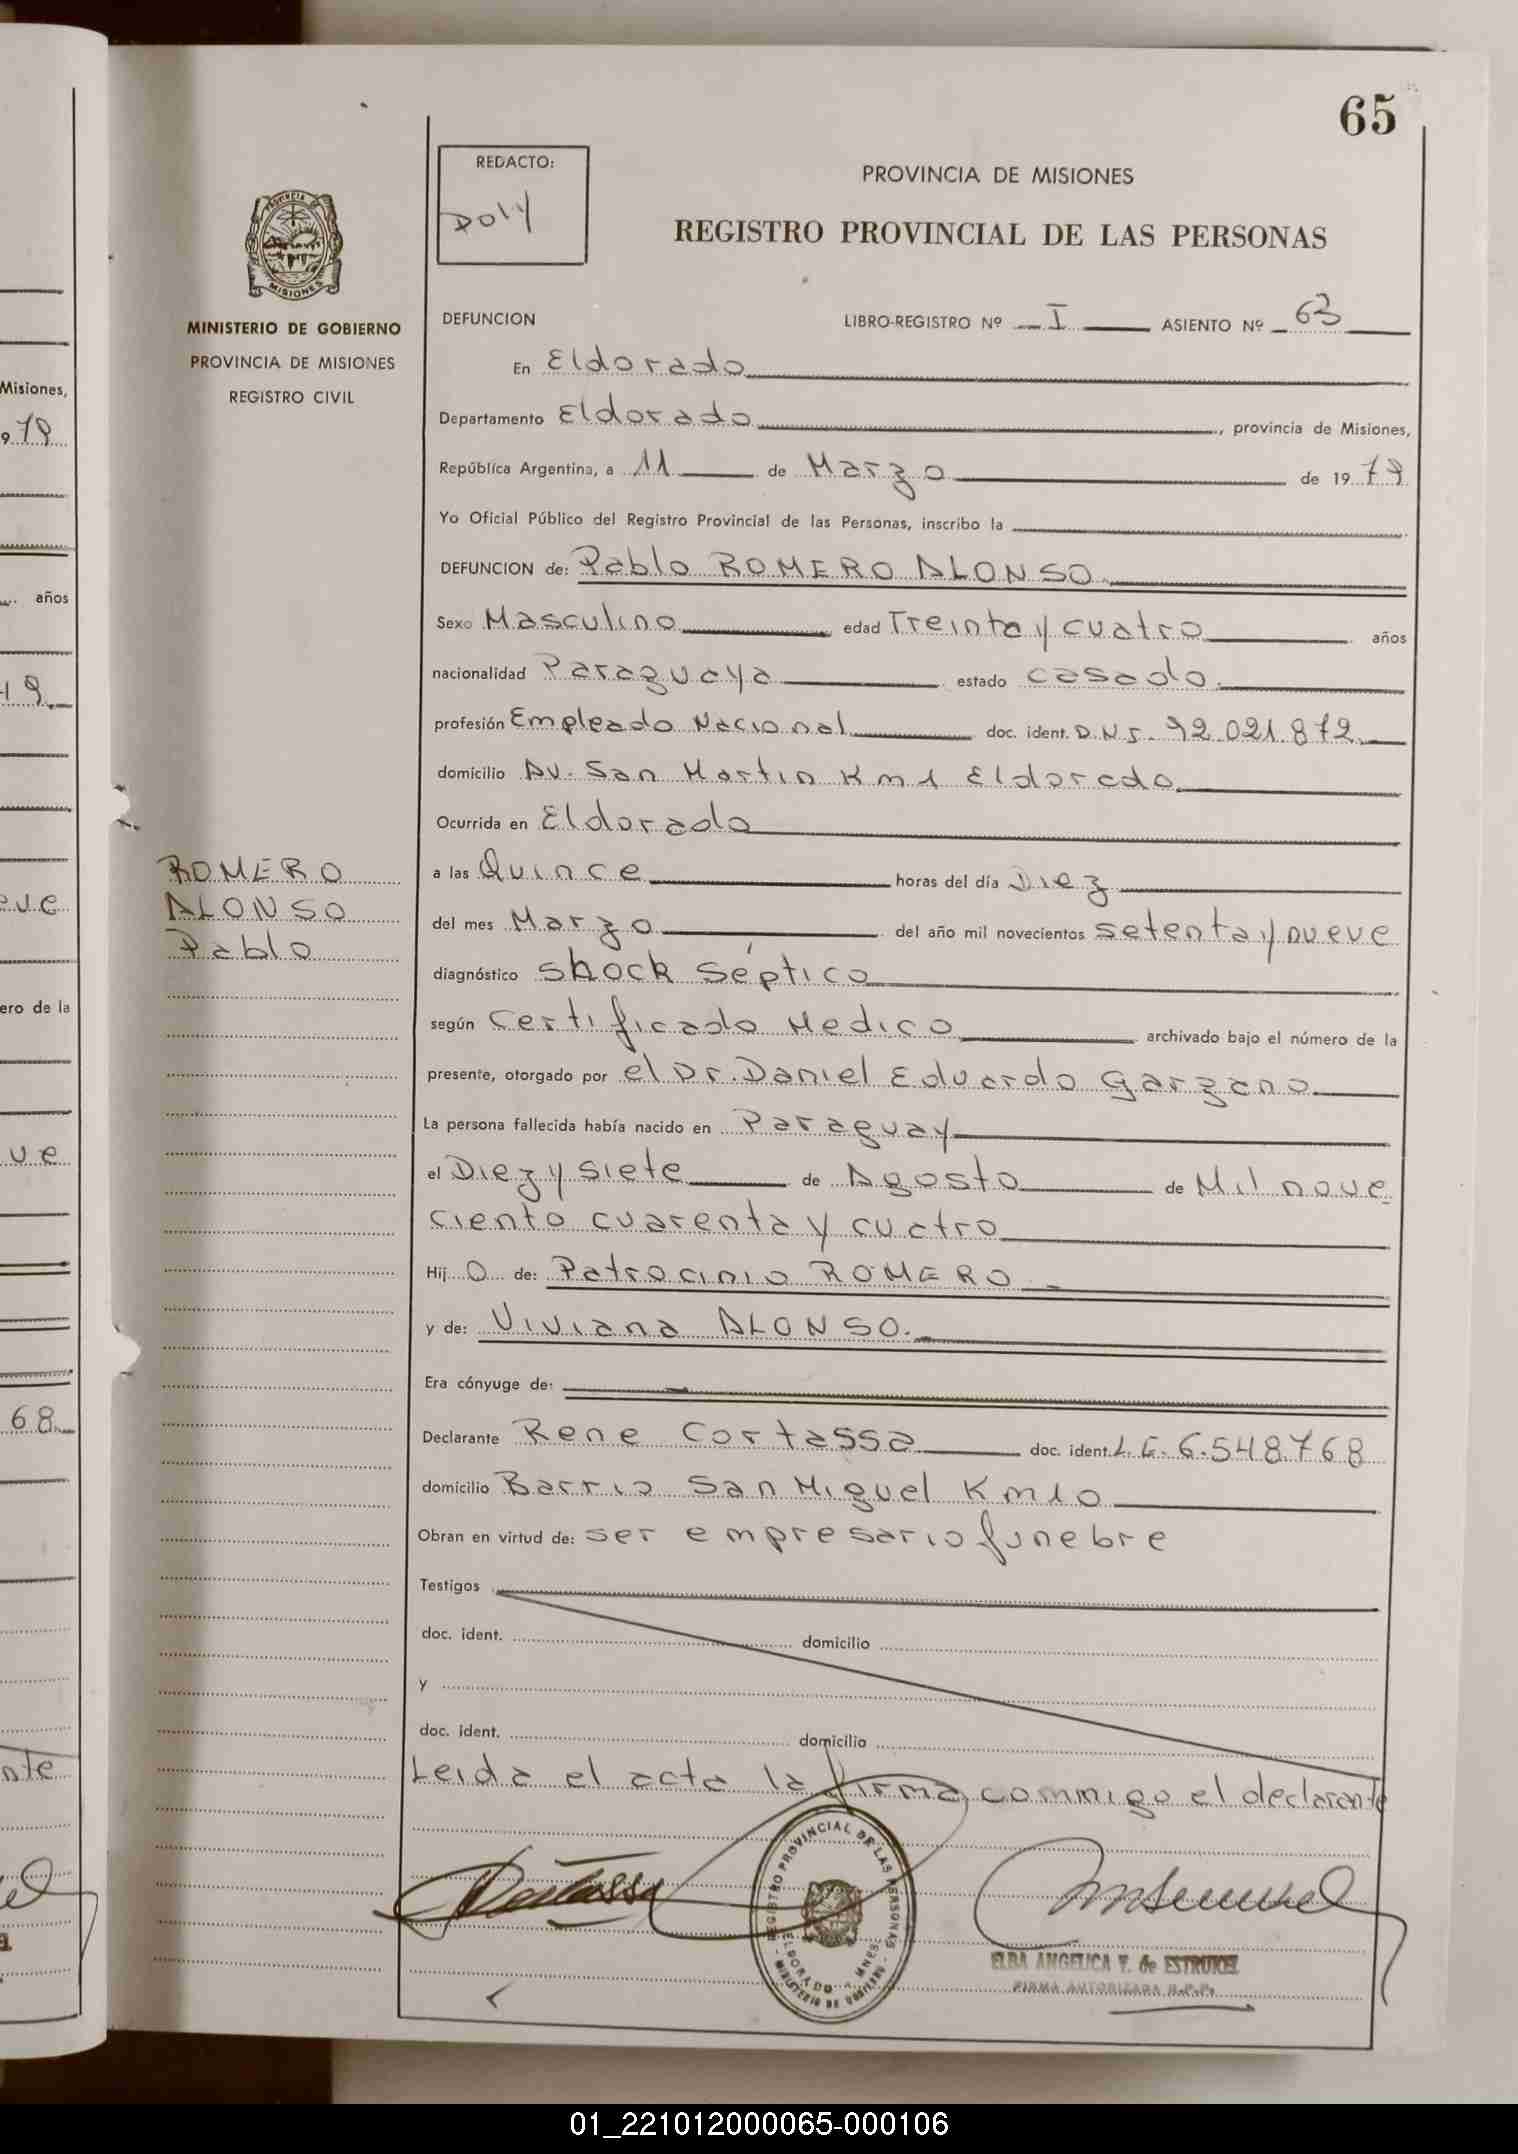 65
REDACTO:
DOLY
PROVINCIA DE MISIONES
REGISTRO PROVINCIAL DE LAS PERSONAS
PROVINCIA
MISIONES
MINISTERIO DE GOBIERNO
PROVINCIA DE MISIONES
REGISTRO CIVIL
DEFUNCION LIBRO-REGISTRO Nº I ASIENTO Nº 63
En Eldorado
Departamento Eldorado, provincia de Misiones,
República Argentina, a 11 de Marzo de 1979
Yo Oficial Público del Registro Provincial de las Personas, inscribo la
DEFUNCION de: Pablo ROMERO ALONSO.
Sexo Masculino edad Treinta y cuatro años
nacionalidad Paraguaya estado casado.
profesión Empleado Nacional doc. ident. D.N.I. 92.021.872.
domicilio Av. San Martin Km 1 Eldorado.
Ocurrida en Eldorado
a las Quince horas del día Diez
del mes Marzo del año mil novecientos setenta y nueve
diagnóstico shock séptico
según certificado Medico archivado bajo el número de la
presente, otorgado por el Dr. Daniel Eduardo Garzano
La persona fallecida había nacido en Paraguay
el Diez y siete de Agosto de Mil nove
ciento cuarenta y cuatro
Hij o de: Patrocinio ROMERO
y de: Viviana ALONSO.
Era cónyuge de:
Declarante Rene Cortassa doc. ident. L.E. 6.548.768
domicilio Barrio San Miguel Km 10
Obran en virtud de: ser empresario funebre
Testigos
doc. ident. domicilio
y
doc. ident. domicilio
Leida el acta la firma conmigo el declarante
ROMERO
ALONSO
Pablo
REGISTRO PROVINCIAL DE LAS PERSONAS
ELDORADO MNES.
MINISTERIO DE GOBIERNO
ELBA ANGELICA V. de ESTRUKEL
FIRMA AUTORIZADA R.P.P.
Misiones,
979
años
19.
eve
ero de la
ve
68.
nte
01_221012000065-000106